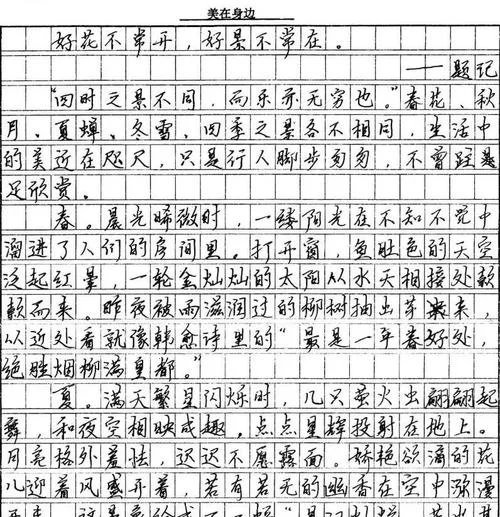 美在身边
好花不常开，好景不常在。
——题记
“四时之景不同，而乐亦无穷也。”春花、秋
月、夏蝉、冬雪、四季之景各不相同，生活中
的美近在咫尺，只是行人脚步匆匆，不曾驻
足欣赏。
春。晨光晞微时，一缕阳光在不知不觉中
溜进了人们的房间里。打开窗，鱼肚色的天空
泛起红晕，一轮金灿灿的太阳从水天相接处款
款而来。昨夜被雨滋润过的柳树抽出芽来，
从近处看就像韩愈诗里的“最是一年春好处，
绝胜烟柳满皇都。”
夏。满天繁星闪烁时，几只萤火虫翩翩起
舞，和夜空相映成趣，点点星辉投射在地上。
月亮格外羞怯，迟迟不愿露面。娇艳欲滴的花
儿迎着风盛开着，若有若无的幽香在空中漾漫